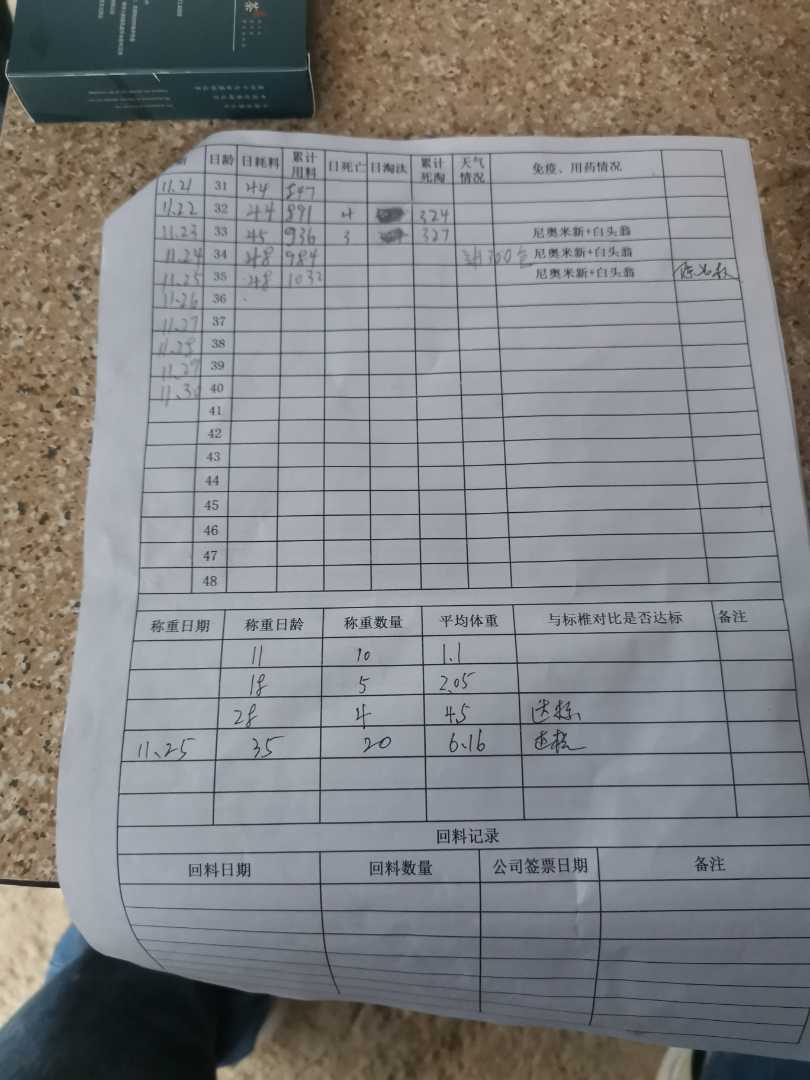 茶
日龄 日耗料 累计用料 日死亡 日淘汰 累计死淘 天气情况 免疫、用药情况
11.21 31 44 847
11.22 32 44 891 4 324
11.23 33 45 936 3 327 尼奥米新+白头翁
11.24 34 48 984 300 尼奥米新+白头翁
11.25 35 48 1032 尼奥米新+白头翁
11.26 36
11.27 37
11.28 38
11.29 39
11.30 40
41
42
43
44
45
46
47
48
称重日期 称重日龄 称重数量 平均体重 与标椎对比是否达标 备注
11 10 1.1
18 5 2.05
28 4 4.5 达标
11.25 35 20 6.16 达标
回料记录
回料日期 回料数量 公司签票日期 备注